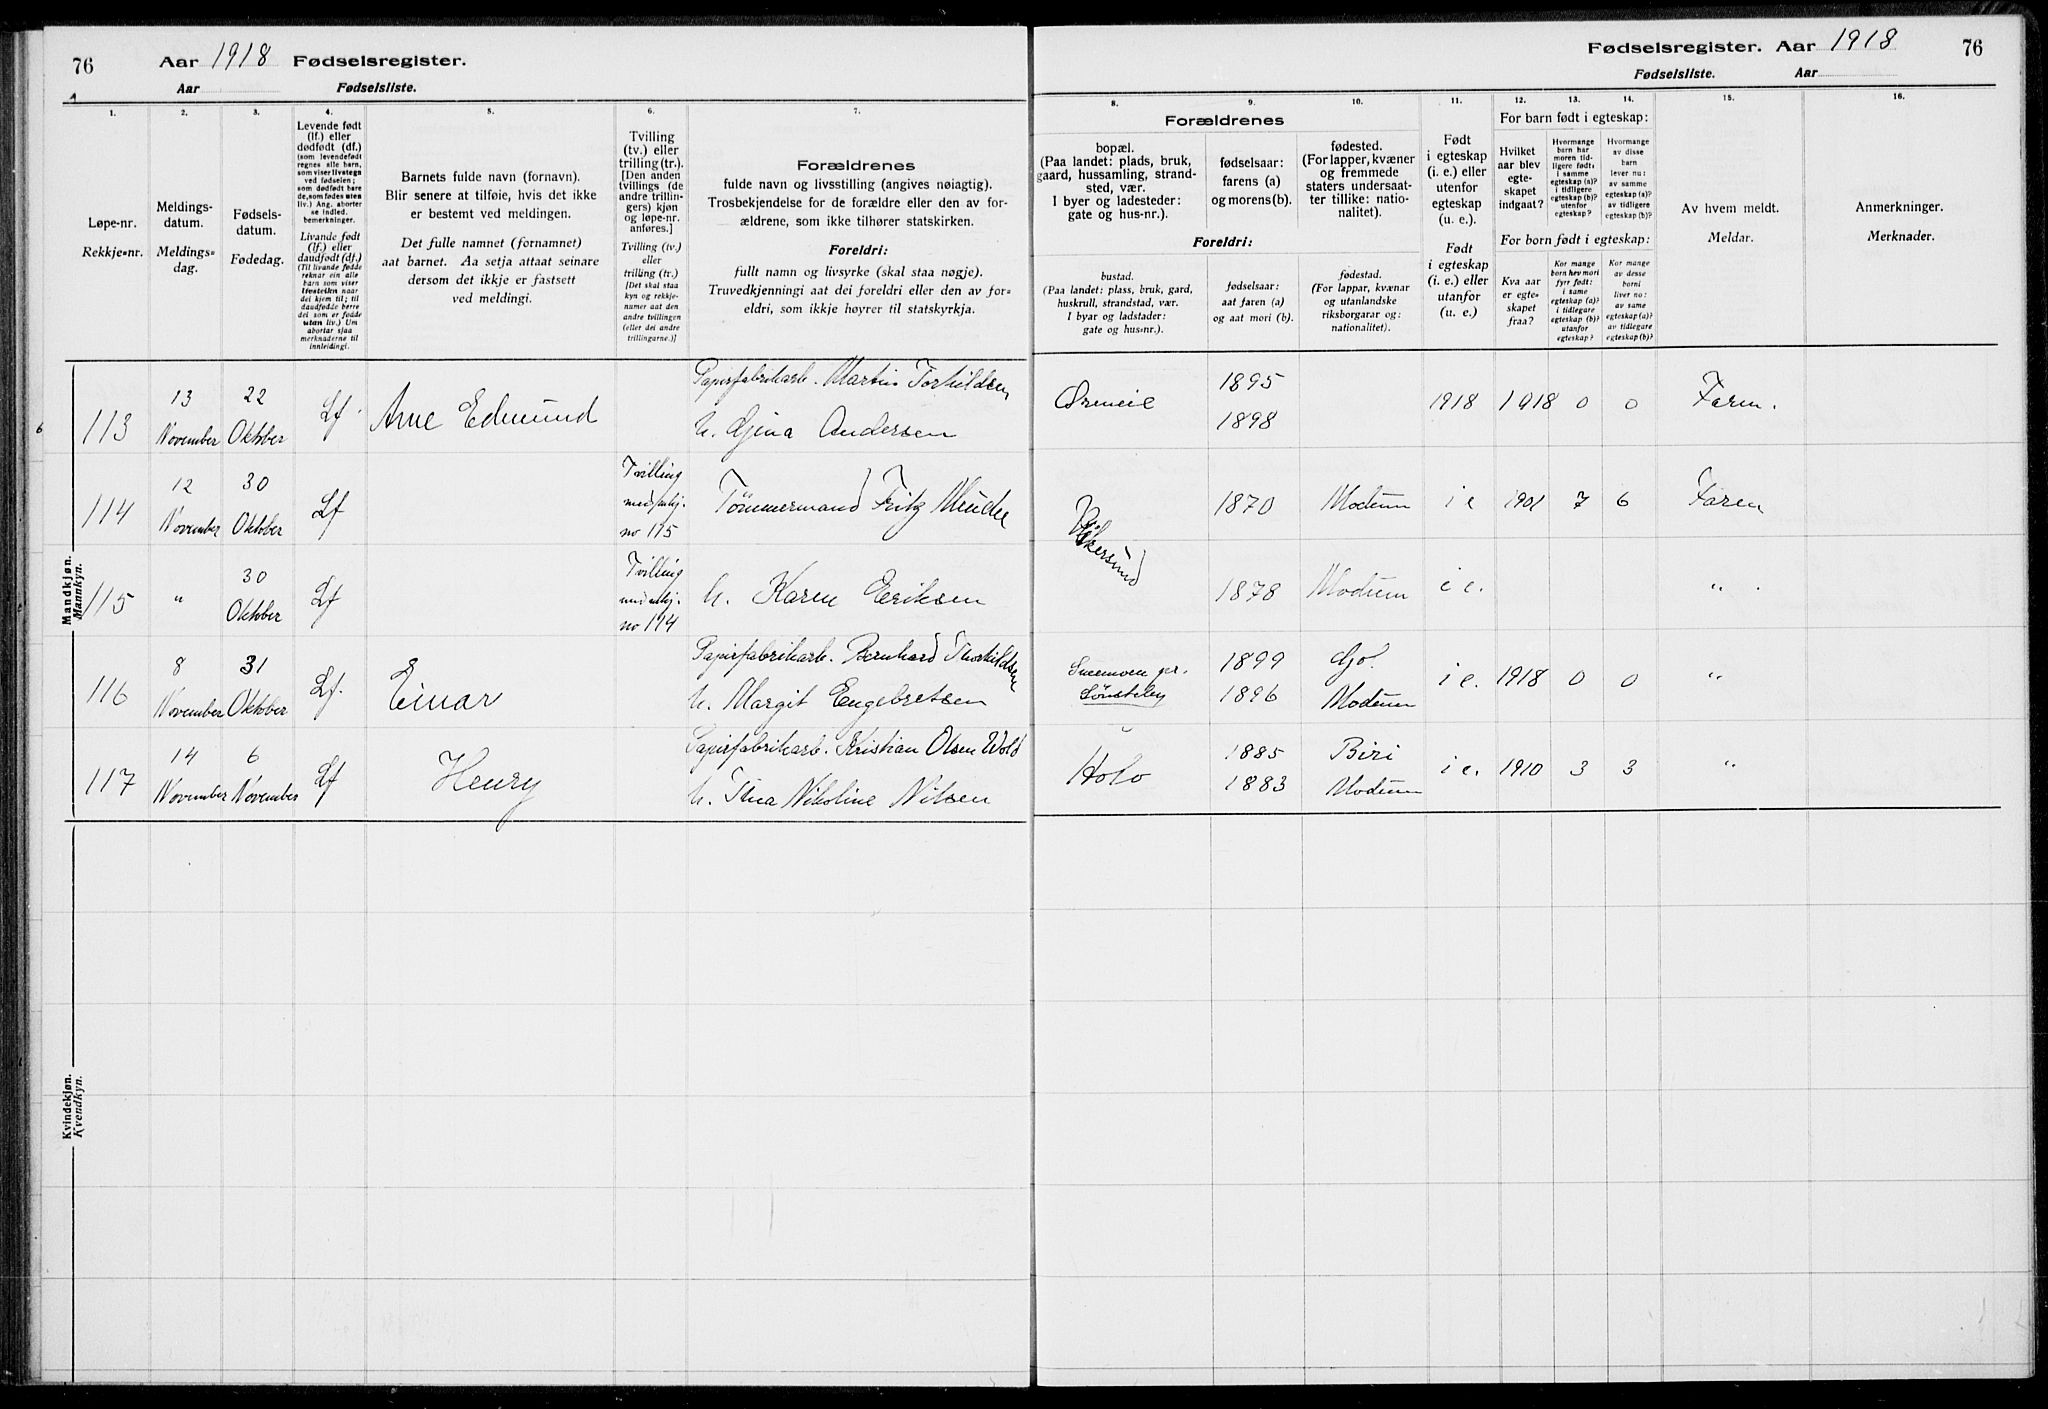 76 Aar 1918 Fødselsregister.
Aar Fødselsliste.
1. 2. 3. 4. 5. 6. 7.
Løpe-nr.
Rekkje=nr.
Meldings-
datum.
Meldings=
dag.
Fødsels-
datum.
Fødedag.
Levende født
(lf.) eller
dødfødt (df.)
(som levendefødt
regnes alle barn,
som viser livstegn
ved fødselen;
som dødfødt bare
de, som fødes uten
liv.) Ang. aborter
se indled.
bemerkninger.
Livande født
(lf.) eller
daudfødt (df.)
(Til livande fødde
reknar ein alle
barn som viser
livsteikn naar
dei kjem til; til
daudfødde berre
dei som er fødde
utan liv.) Um
abortar sjaa
merknaderne til
innleidingi.
Barnets fulde navn (fornavn).
Blir senere at tilføie, hvis det ikke
er bestemt ved meldingen.
Det fulle namnet (fornamnet)
aat barnet. Aa setja attaat seinare
dersom det ikkje er fastsett
ved meldingi.
Tvilling
(tv.) eller
trilling (tr.).
[Den anden
tvillings (de
andre trillin-
gers) kjøn
og løpe-nr.
anføres.]
Tvilling (tv.)
eller
trilling (tr.)
[Det skal staa
kyn og rekkje-
numer aat den
andre tvillingen
(eller dei andre
trillingarne.)]
Forældrenes
fulde navn og livsstilling (angives nøiagtig).
Trosbekjendelse for de forældre eller den av for-
ældrene, som ikke tilhører statskirken.
Foreldri:
fullt namn og livsyrke (skal staa nøgje).
Truvedkjenningi aat dei foreldri eller den av for=
eldri, som ikkje høyrer til statskyrkja.
Mandkjøn.
Mannkyn.
113 13 November 22 Oktober Lf. Arne Edmund Papirfabrikarb. Martin Torkildsen
h. Gjina Andersen
114 12 November 30 Oktober Lf Tvilling
no 115 Tømmermand Fritz
115 " 30 Oktober Lf Tvilling
no 114 h. Karen Eriksen
116 8 November 31 Oktober Lf. Einar Papirfabrikarb. Bernhard Thorkildsen
h. Margit Engebretsen
117 14 November 6 November Lf Henry Papirfabrikarb. Kristian Olsen Wold
h. Thea Nikoline Nilsen
Kvindekjøn.
Kvendkyn.
Fødselsregister. Aar 1918 76
Fødselsliste. Aar
8. 9. 10. 11. 12. 13. 14. 15. 16.
Forældrenes
bopæl.
(Paa landet: plads, bruk,
gaard, hussamling, strand-
sted, vær.
I byer og ladesteder:
gate og hus-nr.).
fødselsaar:
farens (a)
og morens (b).
fødested.
(For lapper, kvæner
og fremmede
staters undersaat-
ter tillike: natio-
nalitet).
Foreldri:
bustad.
(Paa landet: plass, bruk, gard,
huskrull, strandstad, vær.
I byar og ladstader:
gate og hus=nr.).
fødselsaar:
aat faren (a)
og aat mori (b).
fødestad.
(For lappar, kvænar
og utanlandske
riksborgarar og:
nationalitet).
Født
i egteskap
(i. e.) eller
utenfor
egteskap
(u. e.).
Født
i egteskap
(i. e.) eller
utanfor
egteskap
(u. e.)
For barn født i egteskap:
Hvilket
aar blev
egte-
skapet
indgaat?
Hvormange
barn har
moren tid-
ligere født,
i samme
egteskap (a)?
i tidligere
egteskap (b)?
utenfor
egteskap?
Hvormange
av disse
barn
lever nu:
av samme
egteskap (a)?
av tidligere
egteskap (b)?
For born født i egteskap:
Kva aar
er egte-
skapet
fraa?
Kor mange
born hev mori
fyrr født:
i same
egteskap (a)?
i tidlegare
egteskap (b)?
utanfor
egteskap?
Kor mange
av desse
borni
liver no:
av same
egteskap (a)?
av tidlegare
egteskap (b)?
Av hvem meldt.
Meldar.
Anmerkninger.
Merknader.
1895
1898 1918 1918 0 0 Faren.
Vikersund 1870 Modum i e 1901 7 6 Faren
1878 Modum i e. "
1899 Gol.
1896 Modum i e. 1918 0 0 "
Holo 1885 Biri
1883 Modum i e. 1910 3 3 "